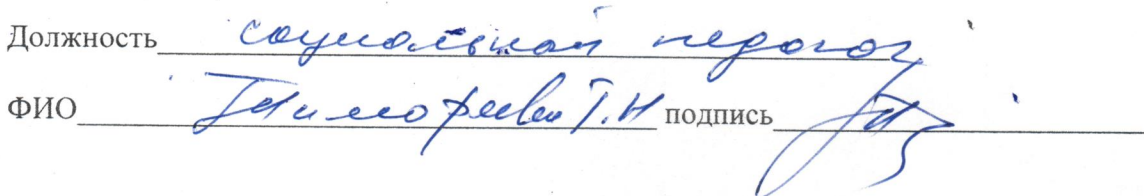 Должность социальный педагог
ФИО Тимофеева Т.Н подпись